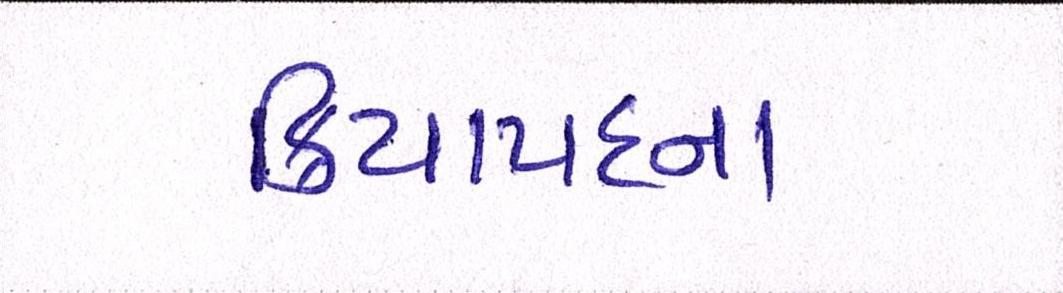 ક્રિયાપદના